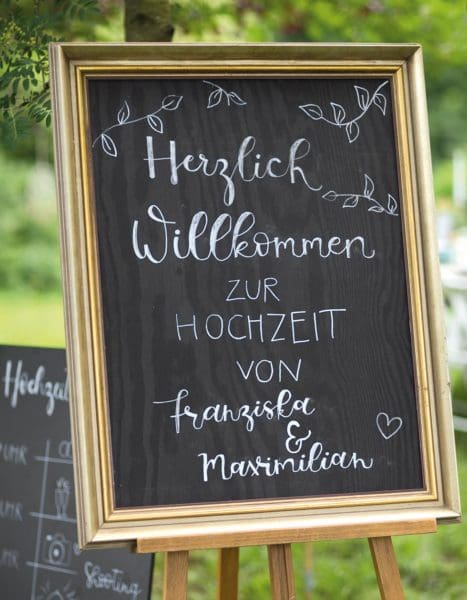 Herzlich
Willkommen
ZUR
HOCHZEIT
VON
Franziska
&
Maximilian
UHR
UHR
UHR
Shooting